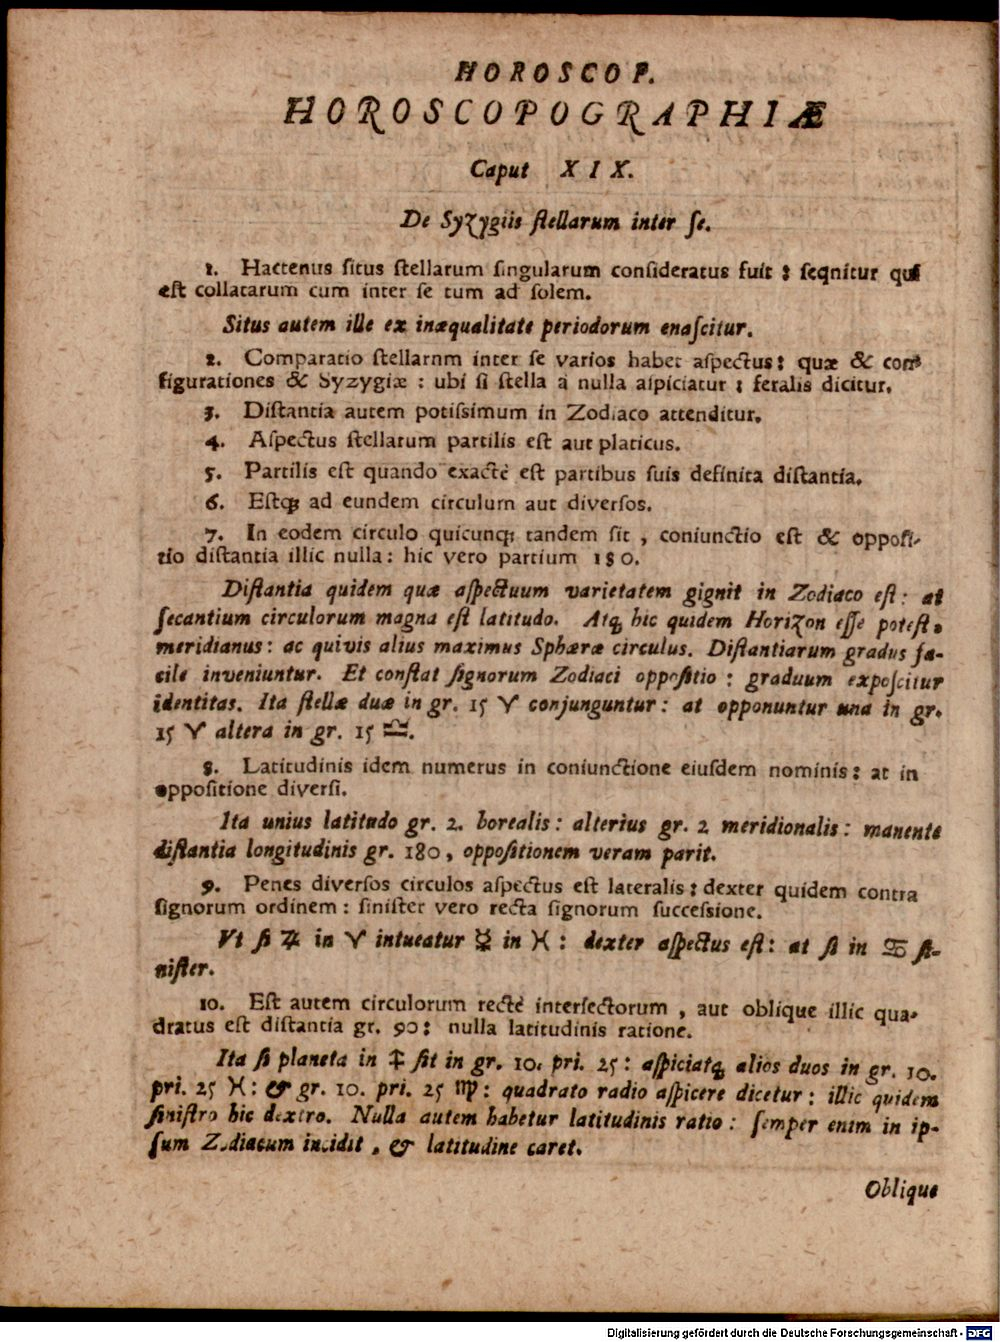 HOROSCOP.
HOROSCOPOGRAPHIÆ
Caput XIX.
De Syzygiis ſtellarum inter ſe.
1. Hactenus ſitus ſtellarum ſingularum conſideratus fuit: ſeqnitur qui
eſt collatarum cum inter ſe tum ad ſolem.
Situs autem ille ex inæqualitate periodorum enaſcitur.
2. Comparatio ſtellarnm inter ſe varios habet aſpectus: quæ & con-
figurationes & Syzygiæ: ubi ſi ſtella a nulla aſpiciatur; feralis dicitur.
3. Diſtantia autem potiſsimum in Zodiaco attenditur.
4. Aſpectus ſtellarum partilis eſt aut platicus.
5. Partilis eſt quando exactè eſt partibus ſuis definita diſtantia.
6. Eſtq; ad eundem circulum aut diverſos.
7. In eodem circulo quicunq; tandem ſit, coniunctio eſt & oppoſi-
tio diſtantia illic nulla: hic vero partium 180.
Diſtantia quidem quæ aſpectuum varietatem gignit in Zodiaco eſt: at
ſecantium circulorum magna eſt latitudo. Atq; hic quidem Horizon eſſe poteſt,
meridianus: ac quivis alius maximus Sphæræ circulus. Diſtantiarum gradus fa-
cile inveniuntur. Et conſtat ſignorum Zodiaci oppoſitio: graduum expoſcitur
identitas. Ita ſtellæ duæ in gr. 15 ♈ conjunguntur: at opponuntur una in gr.
15 ♈ altera in gr. 15 ♎.
8. Latitudinis idem numerus in coniunctione eiuſdem nominis: at in
oppoſitione diverſi.
Ita unius latitudo gr. 2. borealis: alterius gr. 2 meridionalis: manente
diſtantia longitudinis gr. 180, oppoſitionem veram parit.
9. Penes diverſos circulos aſpectus eſt lateralis: dexter quidem contra
ſignorum ordinem: ſiniſter vero recta ſignorum ſucceſsione.
Vt ſi ♃ in ♈ intueatur ☿ in ♓: dexter aſpectus eſt: at ſi in ♋ ſi-
niſter.
10. Eſt autem circulorum rectè interſectorum, aut oblique illic qua-
dratus eſt diſtantia gr. 90: nulla latitudinis ratione.
Ita ſi planeta in ♐ ſit in gr. 10. pri. 25: aſpiciatq; alios duos in gr. 10.
pri. 25 ♓: & gr. 10. pri. 25 ♍: quadrato radio aſpicere dicetur: illic quidem
ſiniſtro hic dextro. Nulla autem habetur latitudinis ratio: ſemper enim in ip-
ſum Zodiacum incidit, & latitudine caret.
Oblique
Digitalisierung gefördert durch die Deutsche Forschungsgemeinschaft - DFG